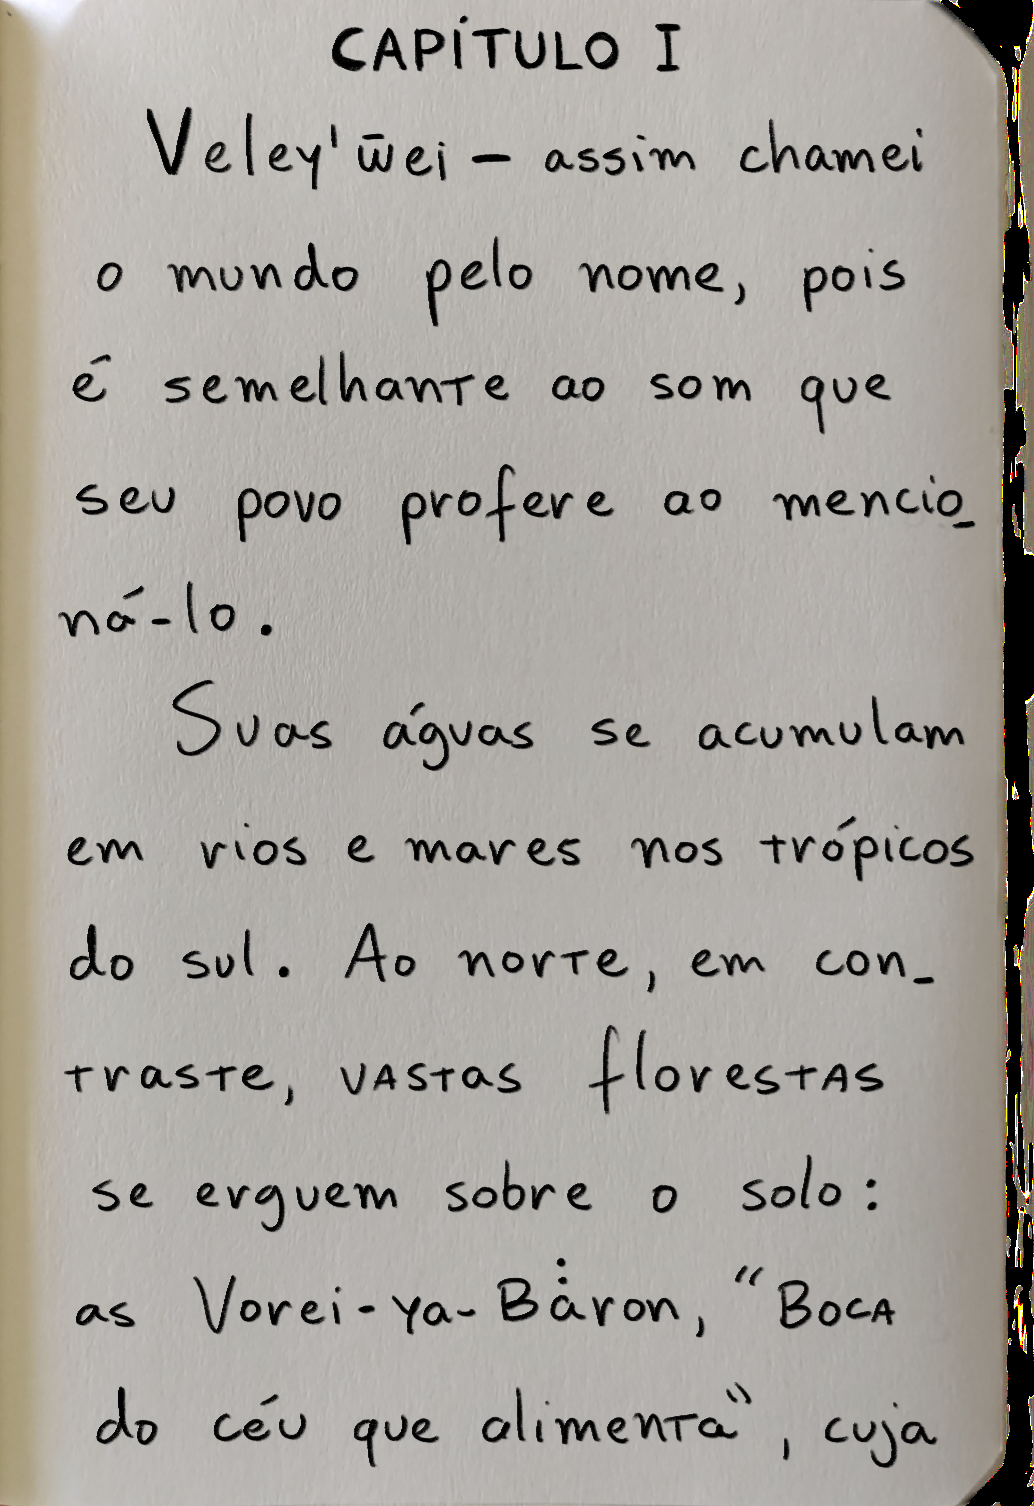 CAPÍTULO I
Veley'w̄ei – assim chamei
o mundo pelo nome, pois
é semelhante ao som que
seu povo profere ao mencio_
ná-lo.
Suas águas se acumulam
em rios e mares nos trópicos
do sul. Ao norte, em con_
traste, vastas florestas
se erguem sobre o solo:
as Vorei-ya-Ba̎ron, "Boca
do céu que alimenta", cuja